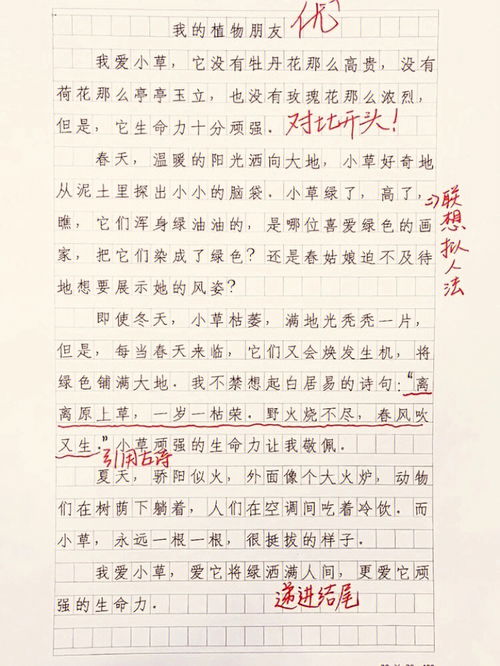 我的植物朋友 优
我爱小草，它没有牡丹花那么高贵，没有
荷花那么亭亭玉立，也没有玫瑰花那么浓烈，
但是，它生命力十分顽强。对比开头！
春天，温暖的阳光洒向大地，小草好奇地
从泥土里探出小小的脑袋。小草绿了，高了，
瞧，它们浑身绿油油的，是哪位喜爱绿色的画
家，把它们染成了绿色？还是春姑娘迫不及待
地想要展示她的风姿？
联想拟人法
即使冬天，小草枯萎，满地光秃秃一片，
但是，每当春天来临，它们又会焕发生机，将
绿色铺满大地。我不禁想起白居易的诗句：“离
离原上草，一岁一枯荣。野火烧不尽，春风吹
又生。”小草顽强的生命力让我敬佩。
引用古诗
夏天，骄阳似火，外面像个大火炉，动物
们在树荫下躺着，人们在空调间吃着冷饮。而
小草，永远一根一根，很挺拔的样子。
我爱小草，爱它将绿洒满人间，更爱它顽
强的生命力。 递进结尾